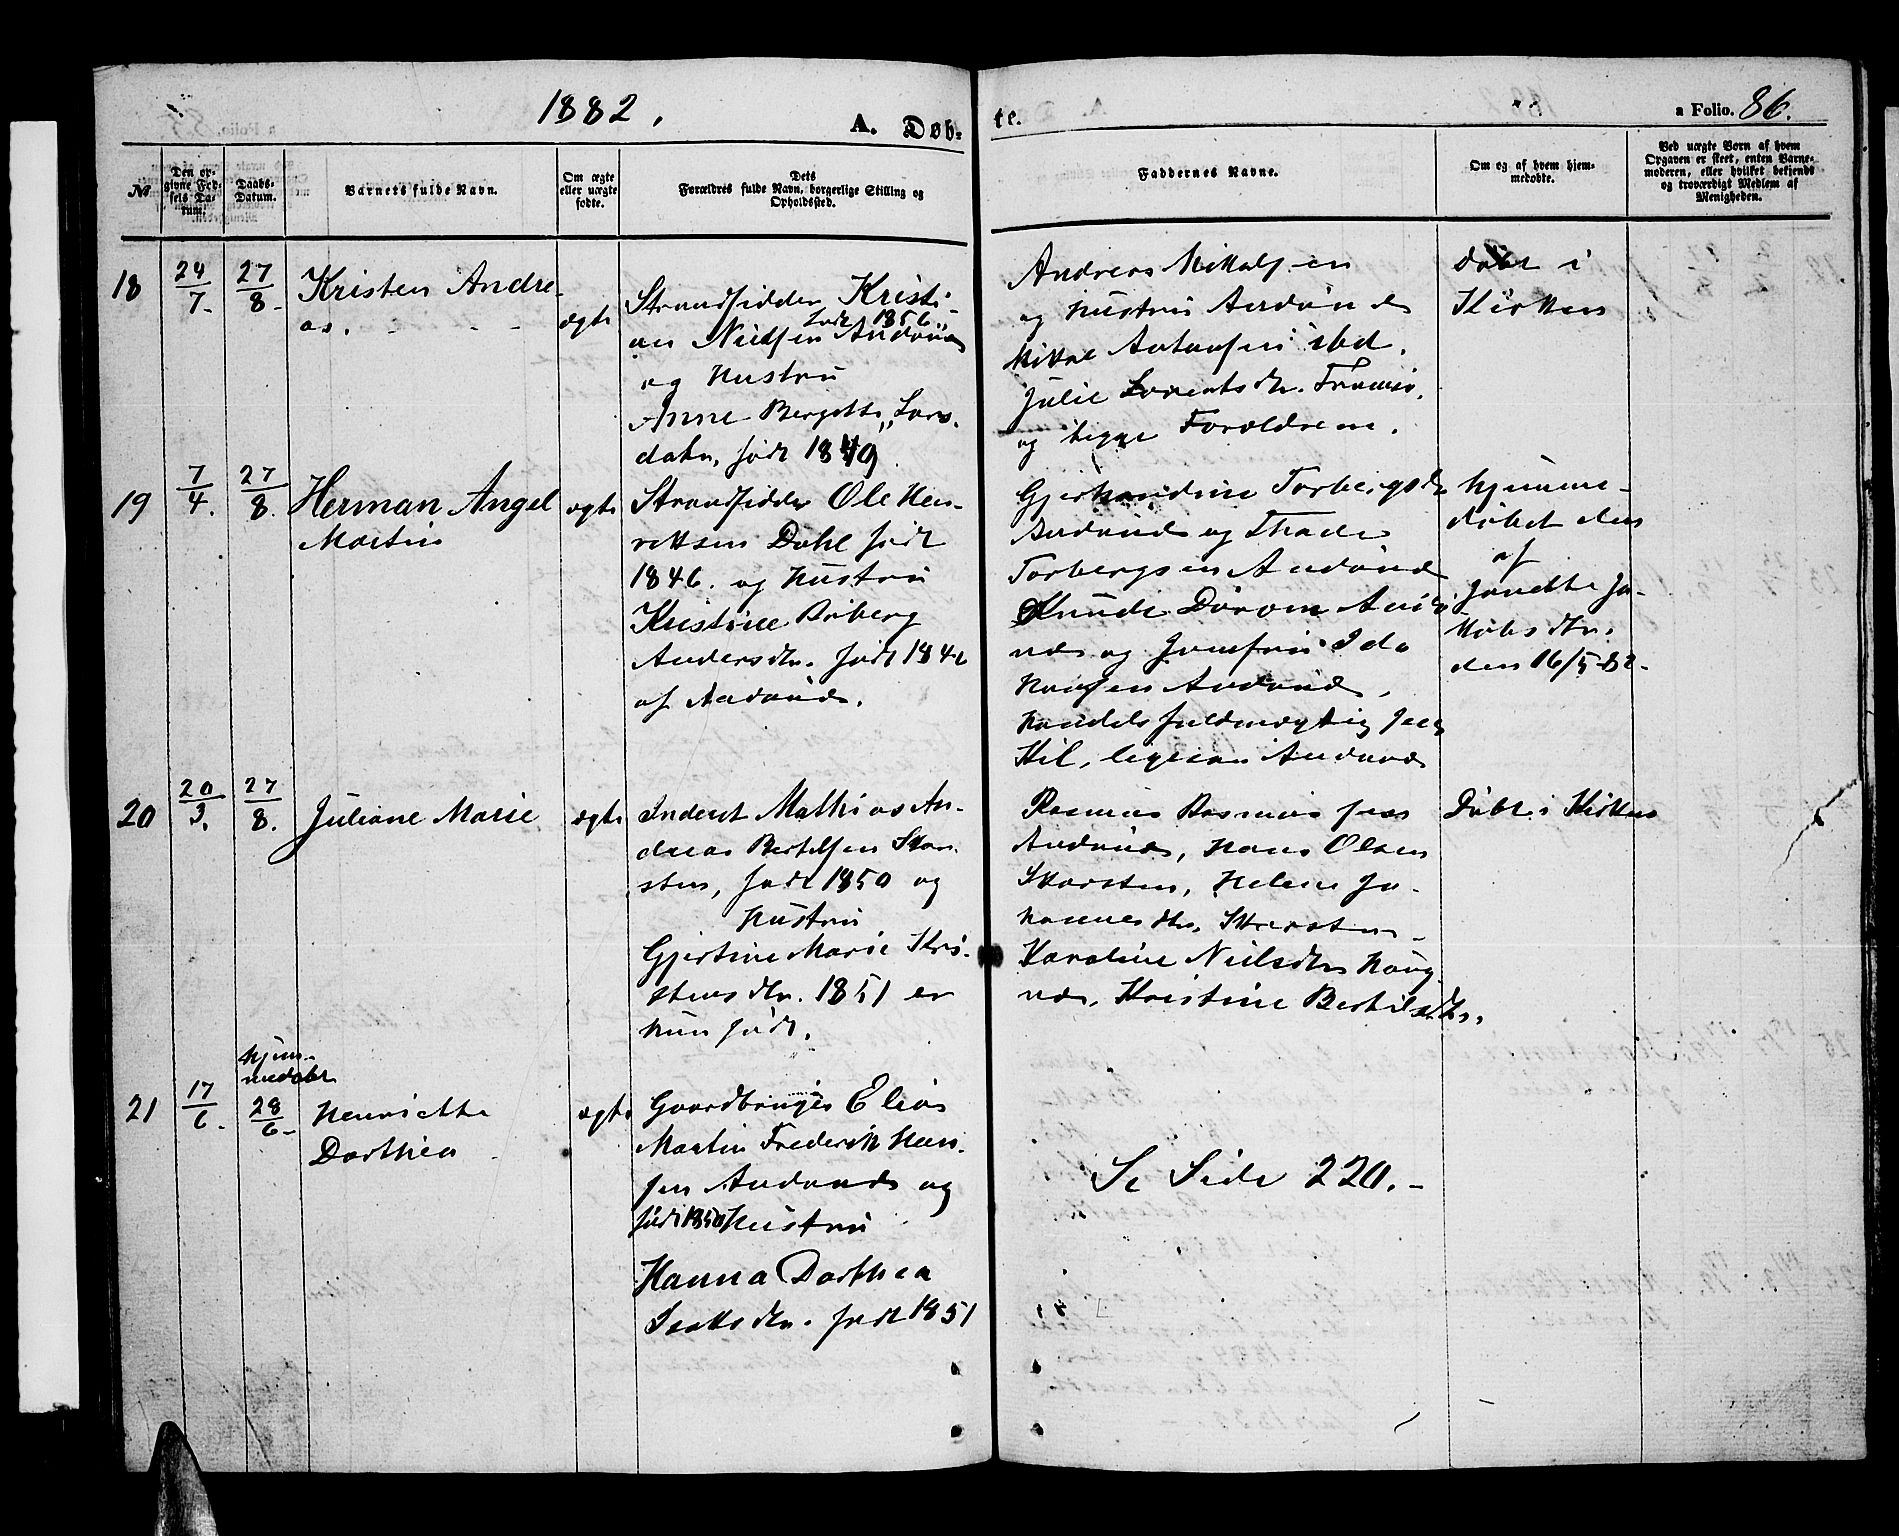 1882.
A. Døb-
te.
a Folio. 86.
No
Den op-
givne Fød-
sels Da-
tum.
Daabs-
Datum.
Barnets fulde Navn.
Om ægte
eller uægte
fødte.
Dets
Forældres fulde Navn, borgerlige Stilling og
Opholdssted.
Faddernes Navne.
Om og af hvem hjem-
medøbte.
Ved uægte Børn af hvem
Opgaven er skeet, enten Barne-
moderen, eller hvilket bekjendt
og troværdigt Medlem af
Menigheden.
18
24/7.
27/8.
Kristen Andre-
as.
ægte
Strandsidder Kristi-
født 1856
an Nielsen Andvund
og Hustru
Anne Bergitte Lars-
datn, født 1849
Andreas Mikalsen
og Hustru
Mikal Antonsen ibd.
Julie Lorentsdtr. Tromsø,
og begge Forældrene.
døbt i
Kirken
19
7/4.
27/8.
Herman Angel
Martin
ægte
Strandsidder Ole Hen-
riksen Dahl født
1846. og Hustru
Kristine Briberg
Andersdtr. født 1842
af
Torbergsdtr
og
Torbergsen
og Jomfru Ida
Hansen
Handelsfuldmægtig
hjemme-
døbt den
af
Janette Ja-
kobsdtr.
den 16/5-82-
20
20/3.
27/8.
Juliane Marie
ægte
Inderst Mathias An-
dreas Bertelsen Skar-
sten, født 1850 og
Hustru
Gjertine Marie Kri-
stensdtr. 1851 er
hun født.
Rasmus
Hans Olsen
Skarsten, Helene Jo-
hannesdtr. Skarsten
Karoline Nielsdtr Haug-
næs, Kristine Bertelsdtr.
Døbt i Kirken
21
17/6.
hjem-
medøbt
28/6-
Henriette
Dorthea
ægte
Gaardbruger Elias
Martin Frederik Han-
sen og
født 1850 Hustru
Hanna Dorthea
Isaksdtr. født 1851
Se Side 220.-